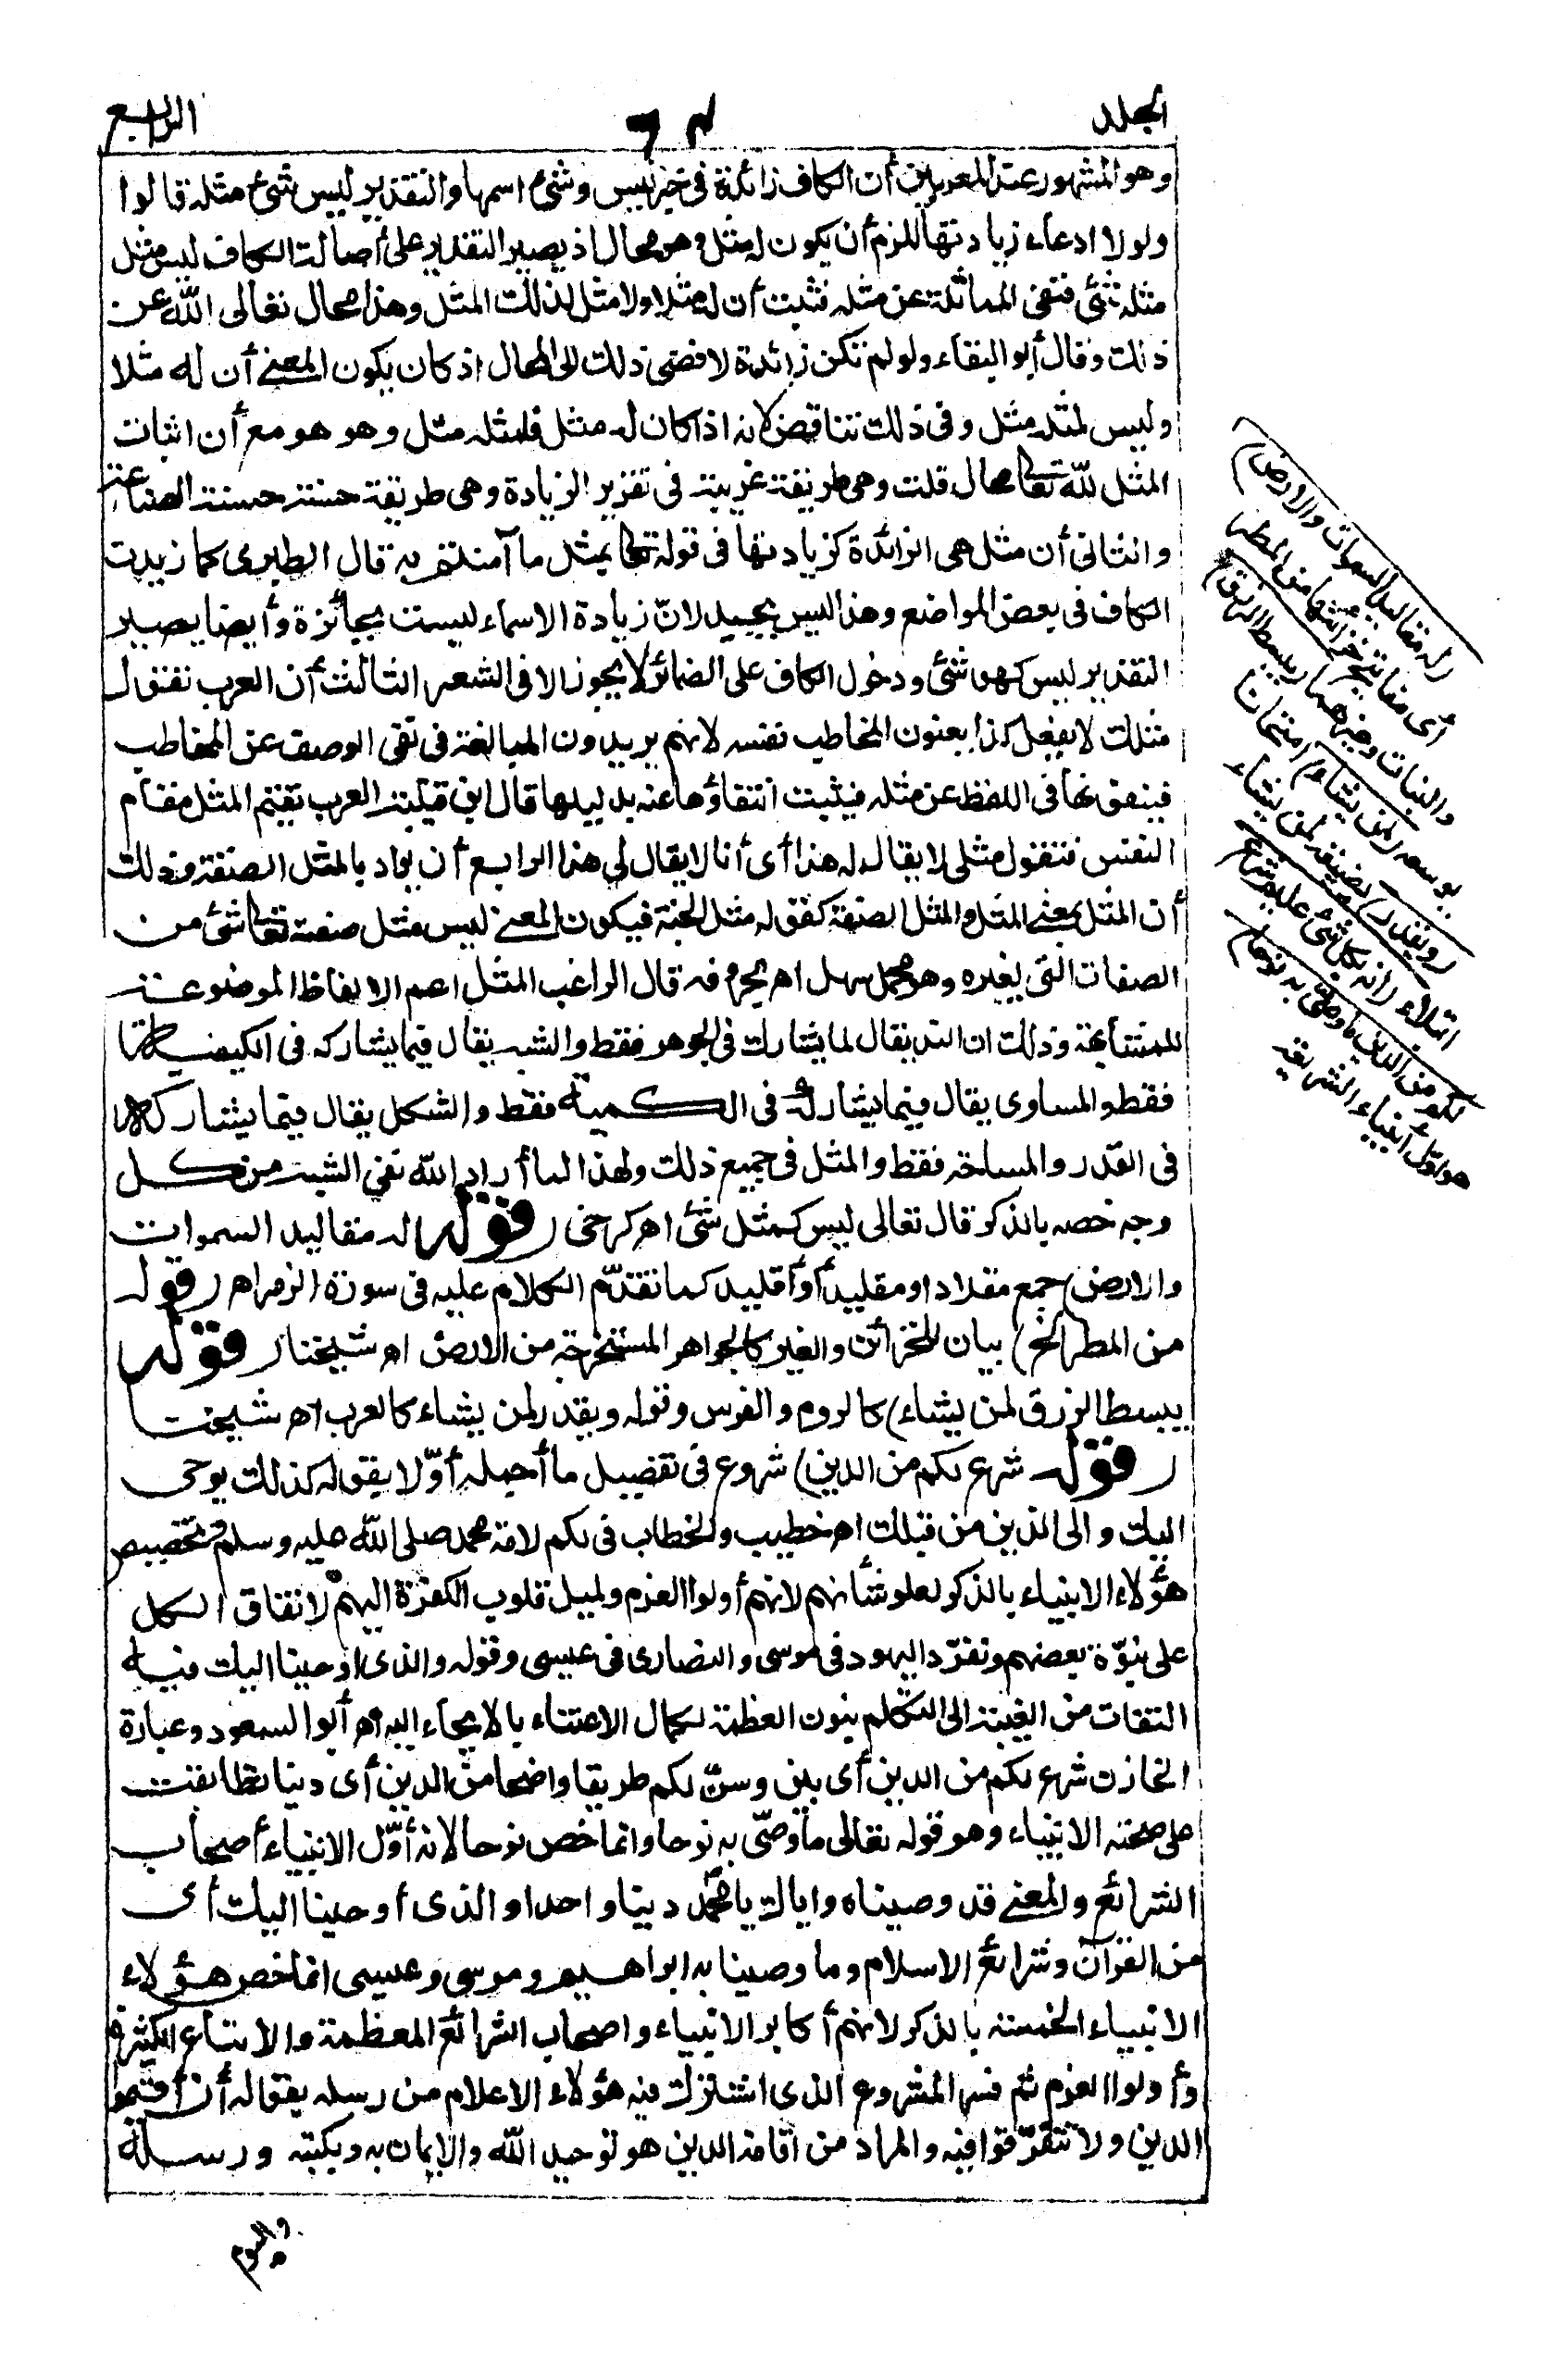 المجلد
٦٢
الرابع
وهو المشهور عند المعربين أن الكاف زائدة في خبر ليس وشئ اسمها والتقدير ليس شئ مثله قالوا
ولولا ادعاء زيادتها للزم أن يكون له مثل وهو محال اذ يصير التقدير على أصالة الكاف ليس مثل
مثله شئ فنفى المماثلة عن مثله فثبت أن له مثلا ولا مثل لذلك المثل وهذا محال تعالى الله عن
ذلك وقال أبو البقاء ولو لم تكن زائدة لافضى ذلك الى المحال اذ كان يكون المعنى أن له مثلا
وليس لمثله مثل وفى ذلك تناقض لانه اذا كان له مثل فلمثله مثل وهو هو مع أن اثبات
المثل لله تعالى محال قلت وهى طريقة غريبة فى تقرير الزيادة وهى طريقة حسنة حسنة الصناعة
والثانى أن مثل هى الزائدة كزيادتها فى قوله تعالى بمثل ما آمنتم به قال الطبرى كما زيدت
الكاف فى بعض المواضع وهذا ليس بجيد لانّ زيادة الاسماء ليست بجائزة وأيضا يصير
التقدير ليس كهو شئ ودخول الكاف على الضمائر لا يجوز الا فى الشعر الثالث أن العرب تقول
مثلك لا يفعل كذا يعنون المخاطب نفسه لانهم يريدون المبالغة فى نفى الوصف عن المخاطب
فينفونها فى اللفظ عن مثله فيثبت انتفاؤها عنه بدليلها قال ابن قتيبة العرب تقيم المثل مقام
النفس فتقول مثلى لا يقال له هذا أى أنا لا يقال لى هذا الرابع أن يراد بالمثل الصفة وذلك
أن المثل بمعنى المثل والمثل الصفة كقوله مثل الجنة فيكون المعنى ليس مثل صفته تعالى شئ من
الصفات التى لغيره وهو محمل سهل اهـ بحروفه قال الراغب المثل اعم الالفاظ الموضوعة
للمشابهة وذلك ان الند يقال لما يشارك فى الجوهر فقط والشبه يقال فيما يشاركه فى الكيفية
فقط والمساوى يقال فيما يشاركه فى الكمية فقط والشكل يقال فيما يشاركه
فى القدر والمساحة فقط والمثل فى جميع ذلك ولهذا لما أراد الله نفى الشبه من كل
وجه خصه بالذكر قال تعالى ليس كمثله شئ اهـ كرخى (قوله له مقاليد السموات
والارض) جمع مقلاد او مقليد أو أقليد كما تقدّم الكلام عليه فى سورة الزمر اهـ (قوله
من المطر الخ) بيان للخزائن والغير كالجواهر المستخرجة من الارض اهـ شيخنا (قوله
يبسط الرزق لمن يشاء) كالروم والفرس وقوله ويقدر لمن يشاء كالعرب اهـ شيخنا
(قوله شرع لكم من الدين) شروع فى تفصيل ما أجمله أوّلا بقوله كذلك يوحى
اليك والى الذين من قبلك اهـ خطيب والخطاب فى لكم لامة محمد صلى الله عليه وسلم وتخصيص
هؤلاء الانبياء بالذكر لعلو شأنهم لانهم أولوا العزم ولميل قلوب الكفرة اليهم لاتفاق الكل
على نبوّة بعضهم وتفرّد اليهود فى موسى والنصارى فى عيسى وقوله والذى أوحينا اليك فيه
التفات من الغيبة الى التكلم بنون العظمة لكمال الاعتناء بالايحاء اليه اهـ أبو السعود وعبارة
الخازن شرع لكم من الدين أى بين وسنّ لكم طريقا واضحا من الدين أى دينا تطابقت
على صحته الانبياء وهو قوله تعالى ما وصّى به نوحا وانما خص نوحا لانه أوّل الانبياء أصحاب
الشرائع والمعنى قد وصيناه واياك يا محمد دينا واحدا والذى أوحينا اليك أى
من القرآن وشرائع الاسلام وما وصينا به ابراهيم وموسى وعيسى انما خص هؤلاء
الانبياء الخمسة بالذكر لانهم أكابر الانبياء واصحاب الشرائع المعظمة والأتباع الكثيرة
وأولوا العزم ثم فسر المشروع الذى اشترك فيه هؤلاء الاعلام من رسله بقوله أن أقيموا
الدين ولا تتفرّقوا فيه والمراد من اقامة الدين هو توحيد الله والايمان به وبكتبه ورسله
واليوم
(له مقاليد السموات والارض)
أى مفاتيح خزائنهما من المطر
والنبات وغيرهما (يبسط الرزق)
يوسعه (لمن يشاء) امتحانا
(ويقدر) يضيقه لمن يشاء
ابتلاء (انه بكل شئ عليم شرع
لكم من الدين ما وصى به نوحا)
هو أوّل أنبياء الشريعة